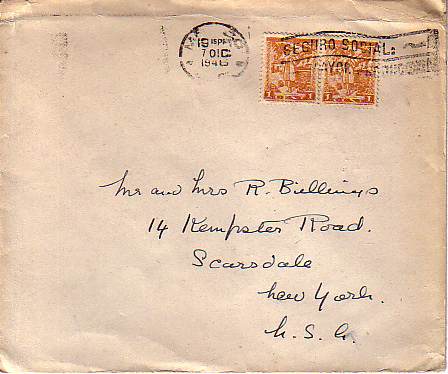 19 15PM
7 DIC
1946
SEGURO SOCIAL:
1 1
Mr and Mrs R. Billings
14 Kempster Road.
Scarsdale
New York.
U.S.A.